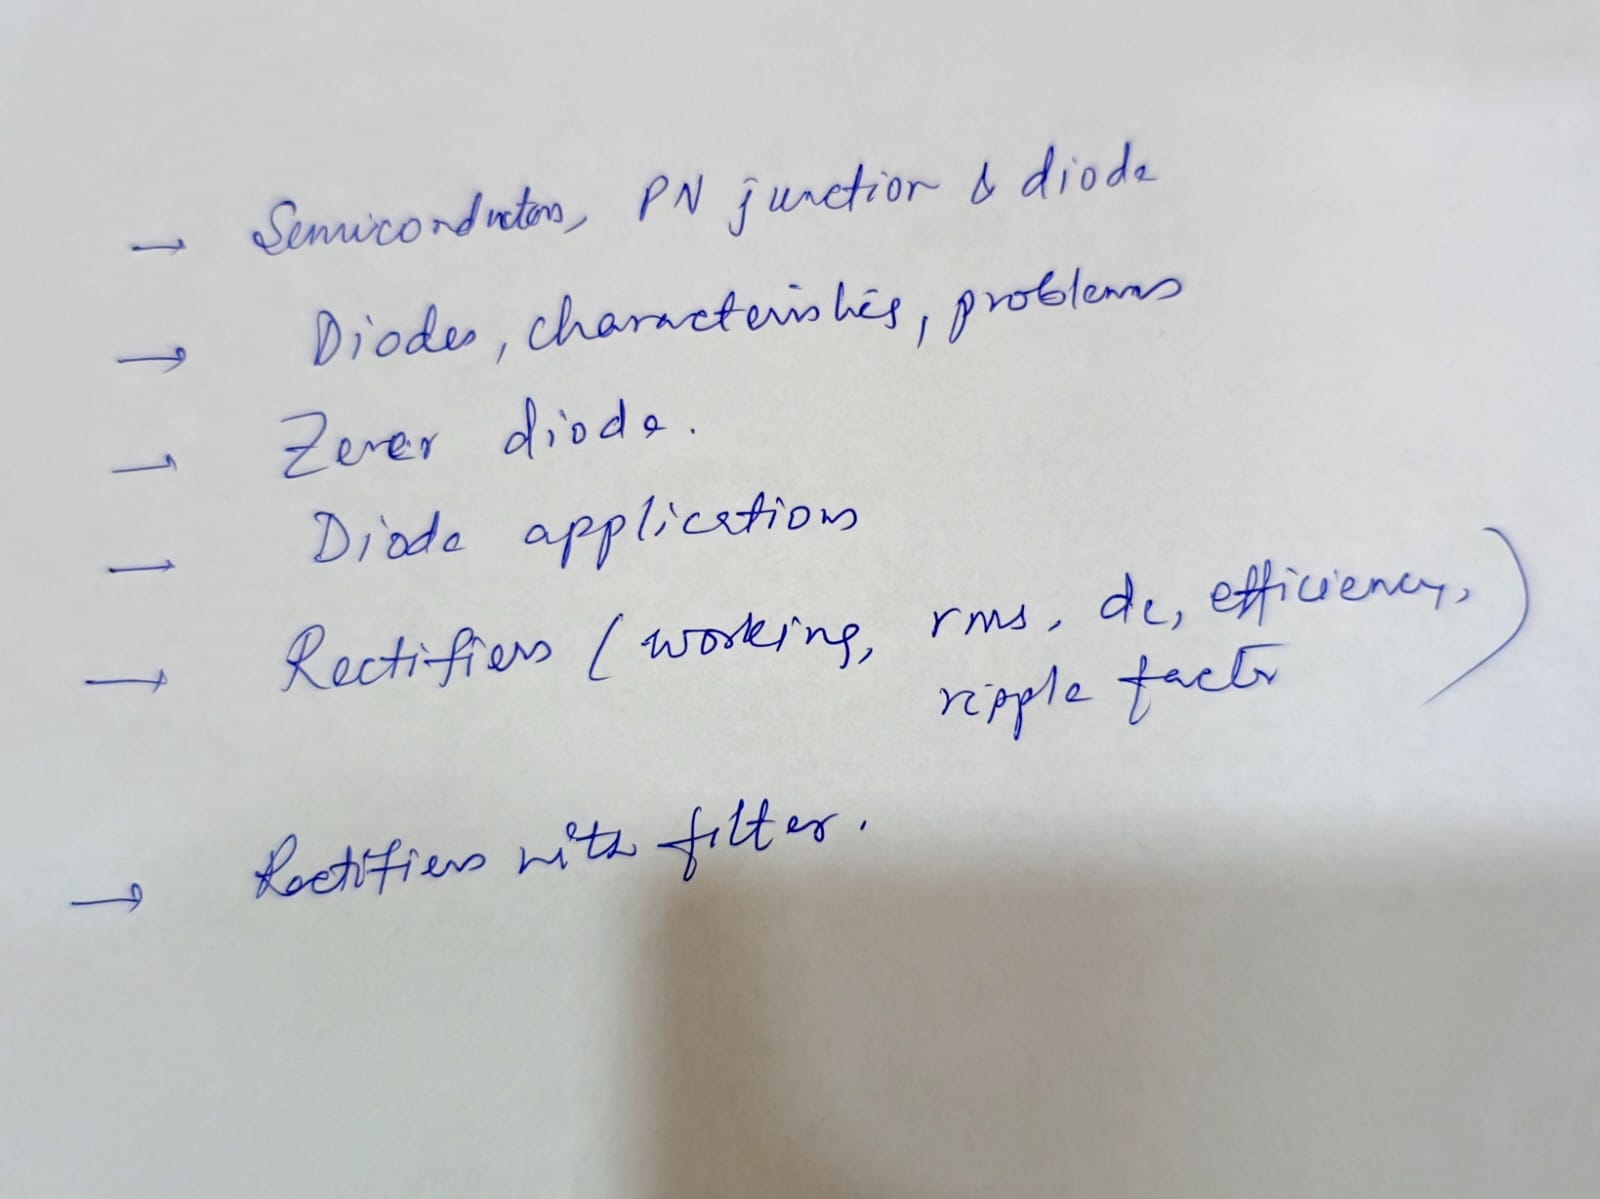 → Semiconductors, PN junction & diode
→ Diodes, characteristics, problems
→ Zener diode.
→ Diode applications
→ Rectifiers (working, rms, dc, efficiency,
ripple factor)
→ Rectifiers with filter.